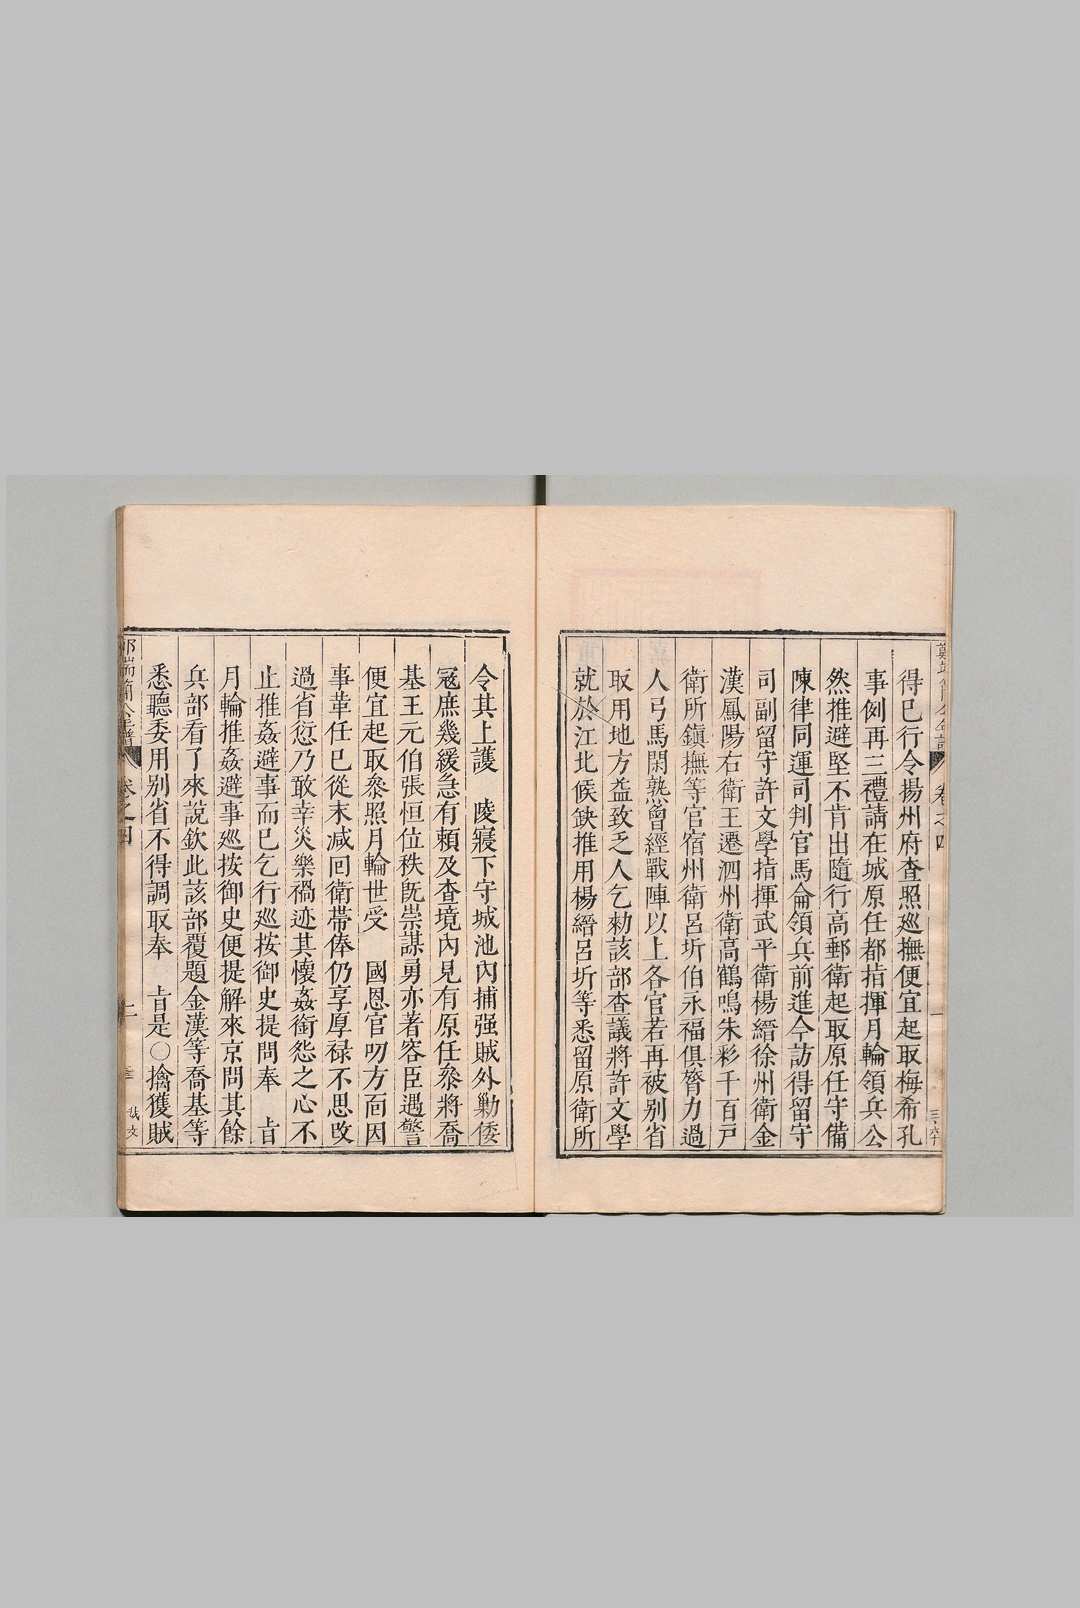 得已行令揚州府查照巡撫便宜起取梅希孔
事例再三禮請在城原任都指揮月輪領兵公
然推避堅不肯出隨行高郵衛起取原任守備
陳律同運司判官馬侖領兵前進今訪得留守
司副留守許文學指揮武平衛楊縉徐州衛金
漢鳳陽右衛王遷泗州衛高鶴鳴朱彩千百戶
衛所鎮撫等官宿州衛呂圻伯永福俱膂力過
人弓馬閑熟曾經戰陣以上各官若再被别省
取用地方益致乏人乞勑該部查議將許文學
就於江北候缺推用楊縉呂圻等悉留原衛所
令其上護　陵寢下守城池內捕强賊外勦倭
寇庶幾緩急有賴及查境內見有原任叅將喬
基王元伯張恒位秩旣崇謀勇亦著容臣遇警
便宜起取叅照月輪世受　國恩官叨方面因
事革任已從末减回衛帶俸仍享厚禄不思改
過省愆乃敢幸災樂禍迹其懷姦銜怨之心不
止推姦避事而已乞行巡按御史提問奉　旨
月輪推姦避事巡按御史便提解來京問其餘
兵部看了來說欽此該部覆題金漢等喬基等
悉聽委用别省不得調取奉　旨是〇擒獲賊
端簡公年譜　卷之四　二